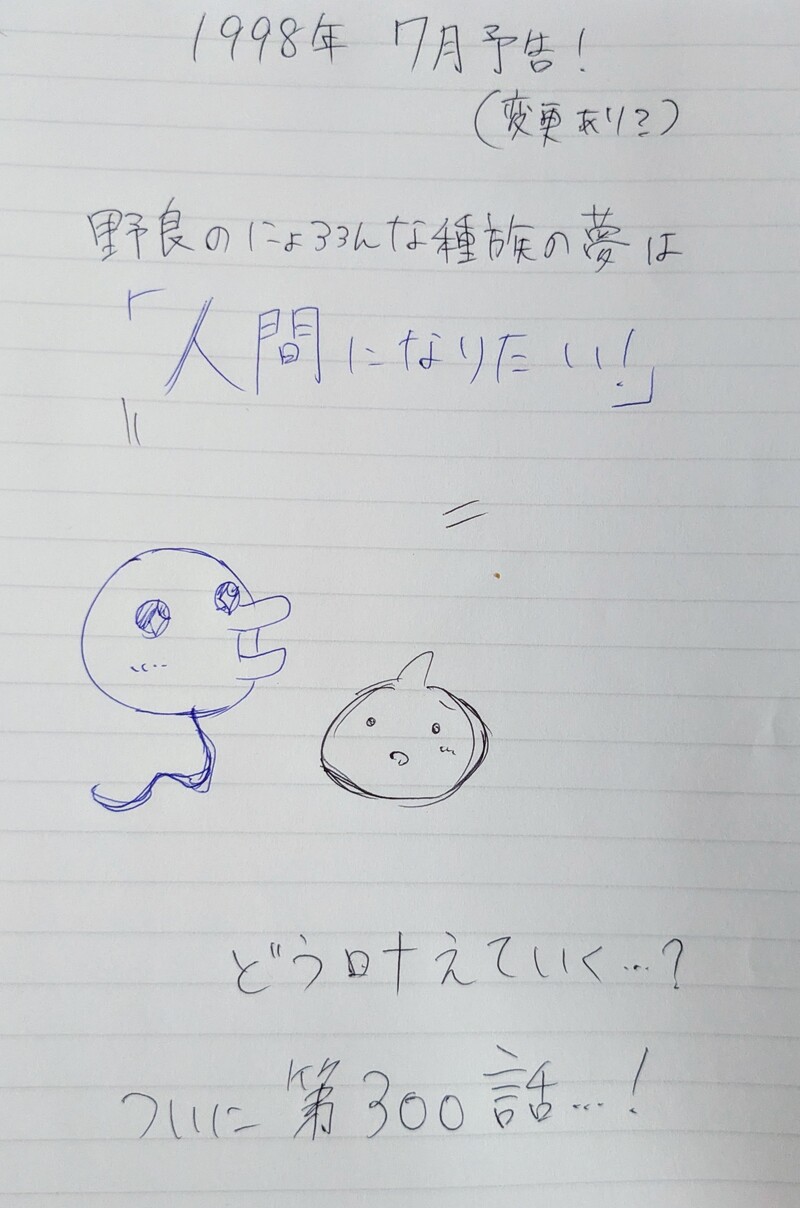 1998年 7月予告!
(変更あり?)
野良のにょろろんな種族の夢は
「人間になりたい!」
どう叶えていく…?
ついに 第300話…!